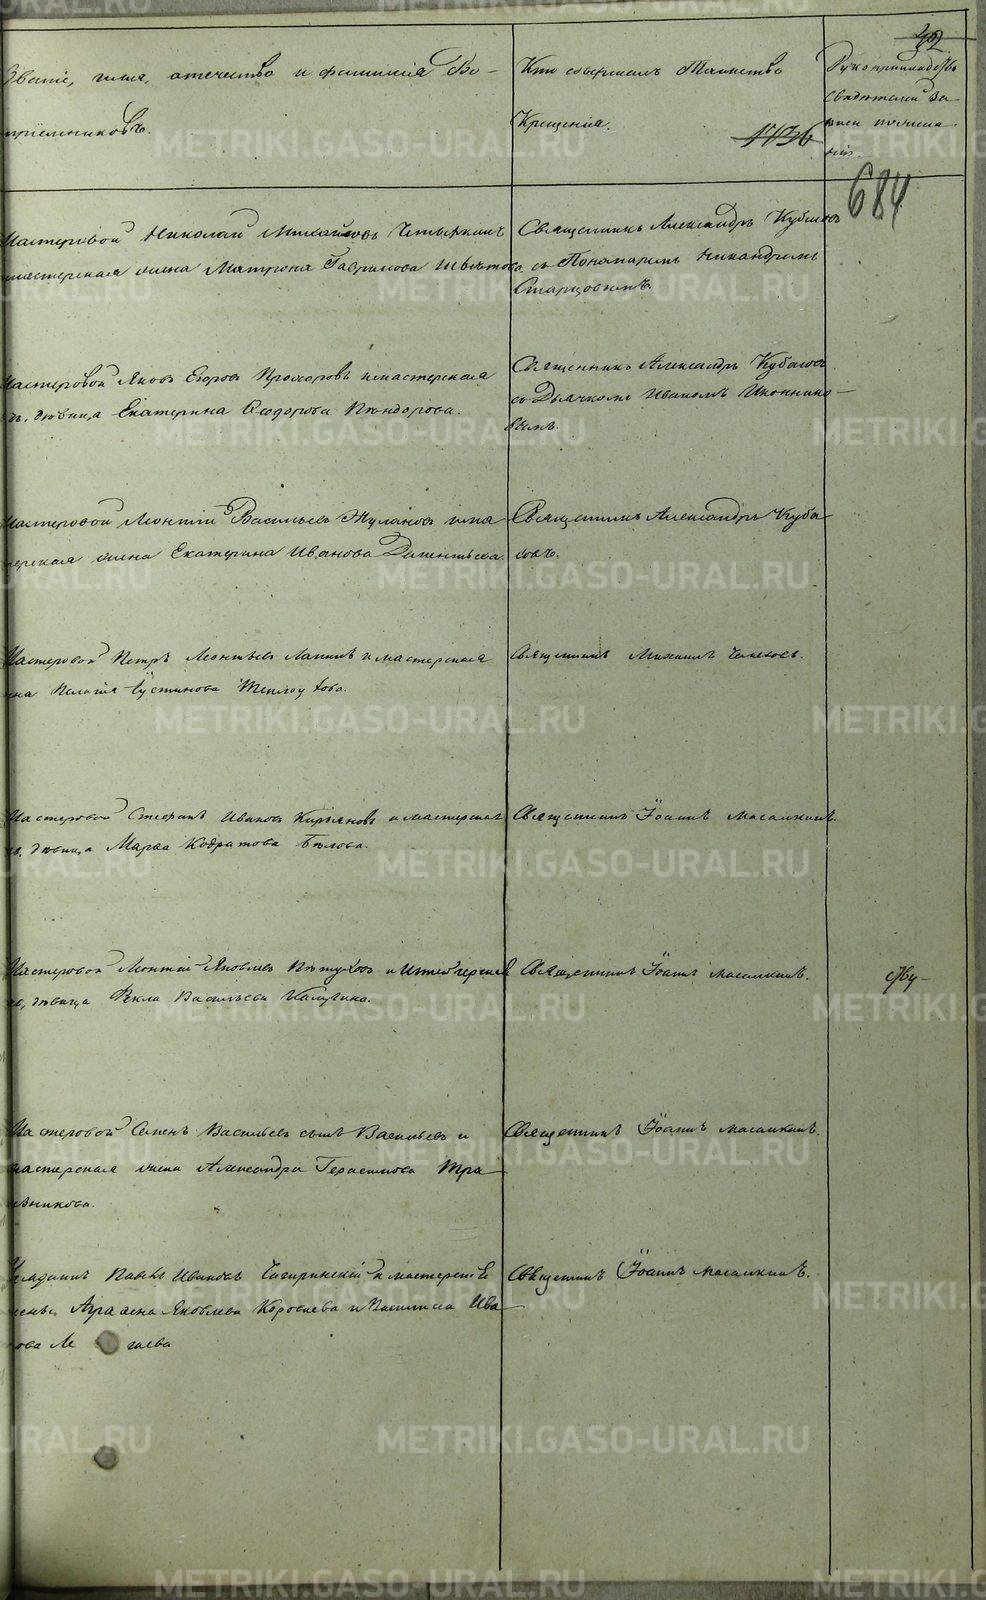 Званіе, имя, отечество и фамилія Во-
пріемниковъ.
Кто совершалъ Таинство
Крещенія.
1736
Рукоприкладство
свидѣтелей за-
писи по
32
684
Мастеровой Николай Михайловъ
мастерская жена Матрона Гаврилова
Священникъ Александръ Кубасовъ
съ Пономаремъ Никандромъ
Старцовымъ.
Мастеровой Яковъ Егоровъ Прохоровъ и мастерская
дѣвица Екатерина Ѳеодорова
Священникъ Александръ Кубасовъ
съ Дьячкомъ Иваномъ Иконнико-
вымъ.
Мастеровой Леонтій Васильевъ Жулановъ и мас
терская жена Екатерина Иванова
Священникъ Александръ Куба
совъ.
Мастеровой Петръ Леонтьевъ Лапинъ и мастерская
жена Пелагія Іустинова Теплоухова.
Священникъ Михаилъ
Мастеровой Стефанъ Ивановъ Кирьяновъ и мастерская
дѣвица Марѳа Кодратова Бѣлова.
Священникъ Іоаннъ Масалкинъ.
Мастеровой Леонтій Яковлевъ Пѣтуховъ и
дѣвица Ѳекла Васильева Калугина.
Священникъ Іоаннъ Масалкинъ.
Мастеровой Семенъ Васильевъ сынъ Васильевъ и
мастерская жена Александра Герасимова Тра
вникова.
Священникъ Іоаннъ Масалкинъ.
Павелъ Ивановъ Чигиринскій и мастерскіе
жены Яковлева Коровьева и Василиса Ива
нова
Священникъ Іоаннъ Масалкинъ.
METRIKI.GASO-URAL.RU